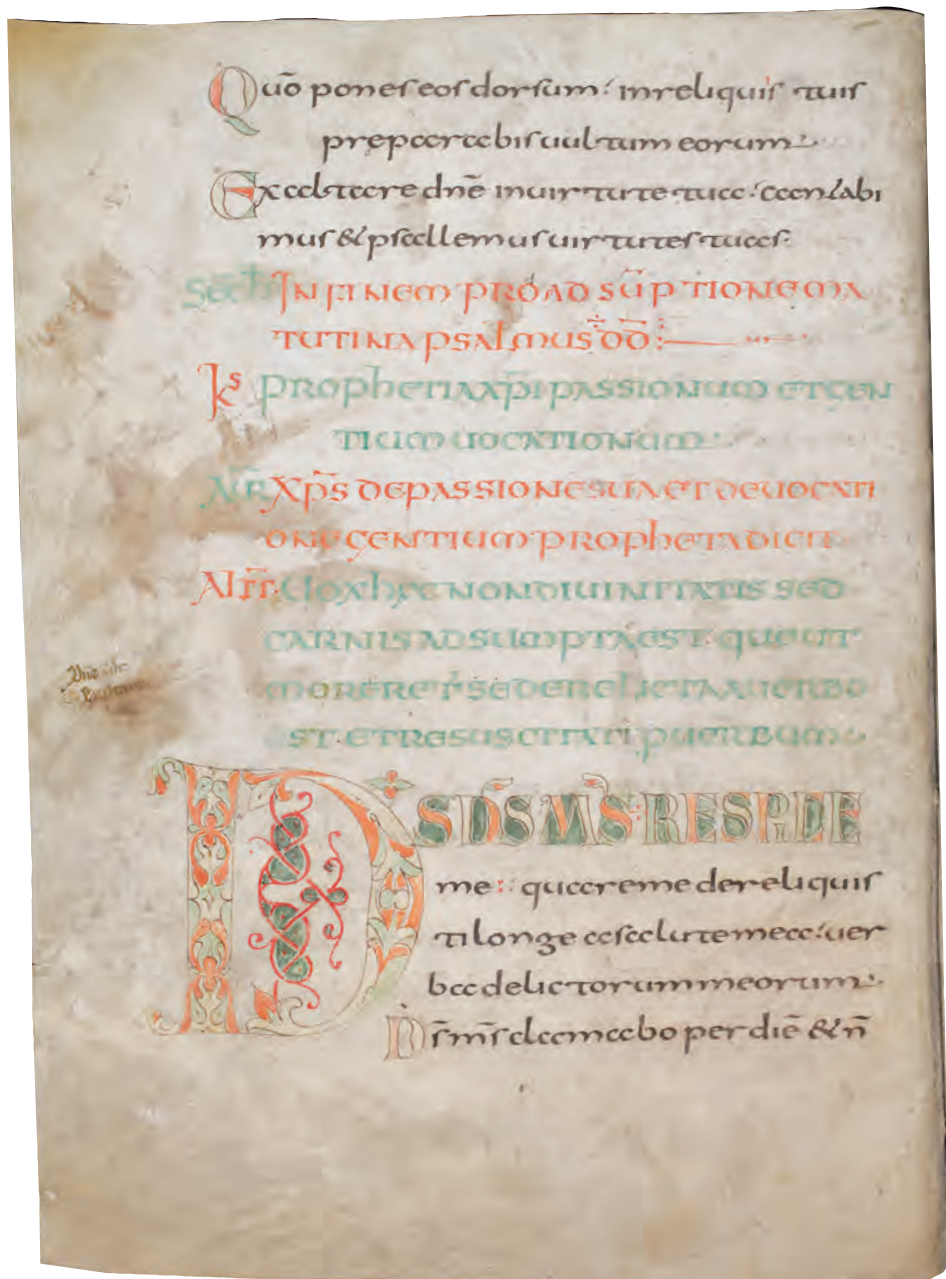 Quō pones eos dorsum: in reliquis tuis
pręparabis uultum eorum
Exaltare dn̄e in uirtute tua: cantabi
mus & psallemus uirtutes tuas:
IN FINEM PRO ADSŪPTIONE MA
TUTINA PSALMUS D̄D
Ks PROPHETIA XP̄I PASSIONUM ET GEN
TIUM UOCATIONUM
XP̄S DE PASSIONE SUA ET DE UOCATI
ONE GENTIUM PROPHETA DICIT
UOX HĘC NON DIUINITATIS SED
CARNIS ADSUMPTA EST QUE UT
MORERETR̄ SE DERELICTA A UERBO
ST ET RESUSCITATI P UERBUM
DS D̄S M̄S RESPICE
me: quare me dereliquis
ti longe a salute mea: uer
ba delictorum meorum
D̄s m̄s clamabo per diē & n̄